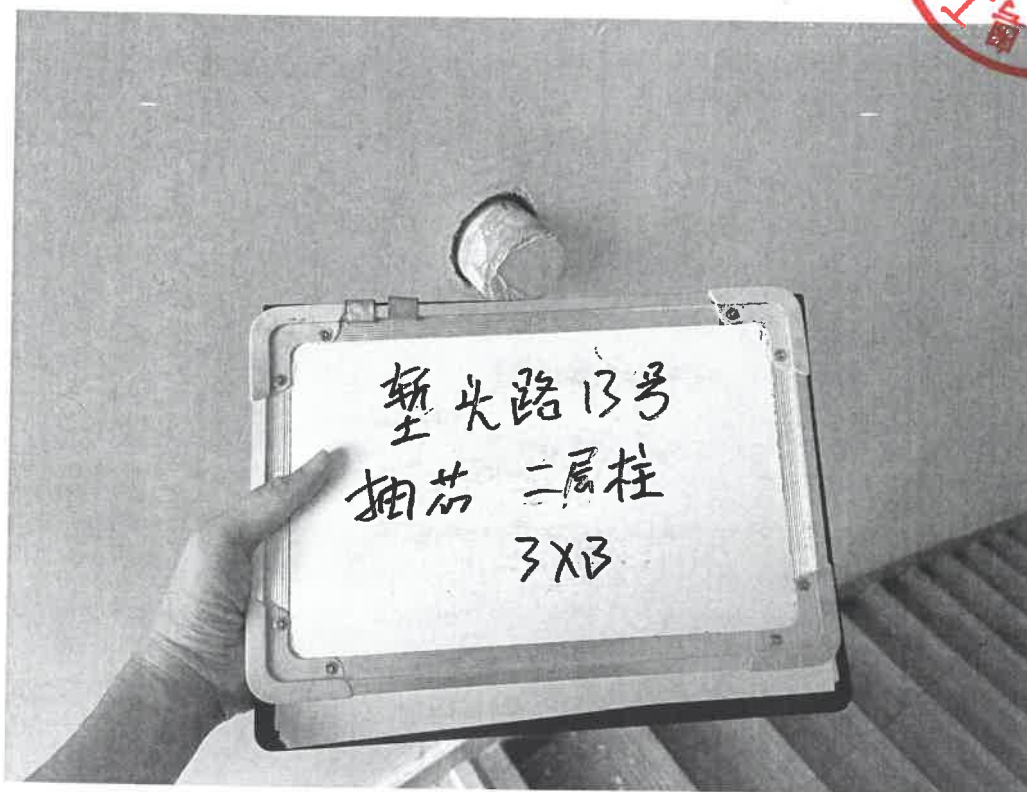 堑头路13号
抽芯 二层柱
3XB